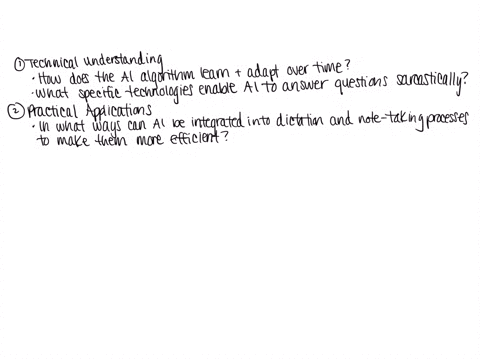 ① Technical understanding
· How does the AI algorithm learn + adapt over time?
· What specific technologies enable AI to answer questions sarcastically?
② Practical Applications
· In what ways can AI be integrated into dictation and note-taking processes
to make them more efficient?